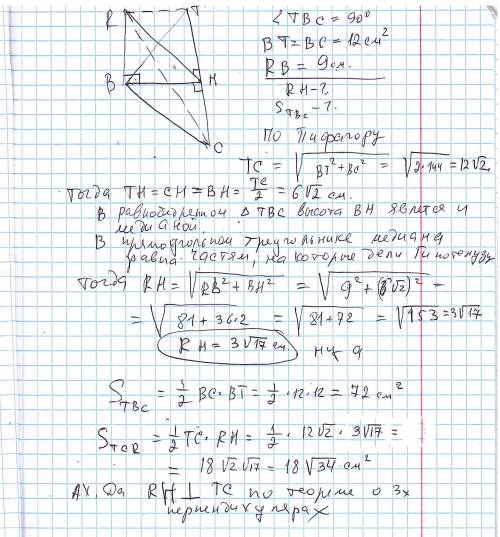 R T
∠TBC = 90°
BT = BC = 12 см²
RB = 9 см.
RH - ?
B H
S_TBC - ?
C
По Пифагору
TC = √(BT² + BC²) = √(2·144) = 12√2
Тогда TH = CH = BH = TC/2 = 6√2 см.
В равнобедренном Δ TBC высота BH является и
медианой.
В прямоугольном треугольнике медиана
равна частям, на которые дели Гипотенузу
Тогда RH = √(RB² + BH²) = √(9² + (6√2)²) =
= √(81 + 36·2) = √(81 + 72) = √153 = 3√17
RH = 3√17 см.
S_TBC = 1/2 BC · BT = 1/2 · 12 · 12 = 72 см²
S_TCR = 1/2 TC · RH = 1/2 · 12√2 · 3√17 =
= 18√2 √17 = 18√34 · см²
Ах, Да RH ⊥ TC по теореме о 3х
перпендикулярах